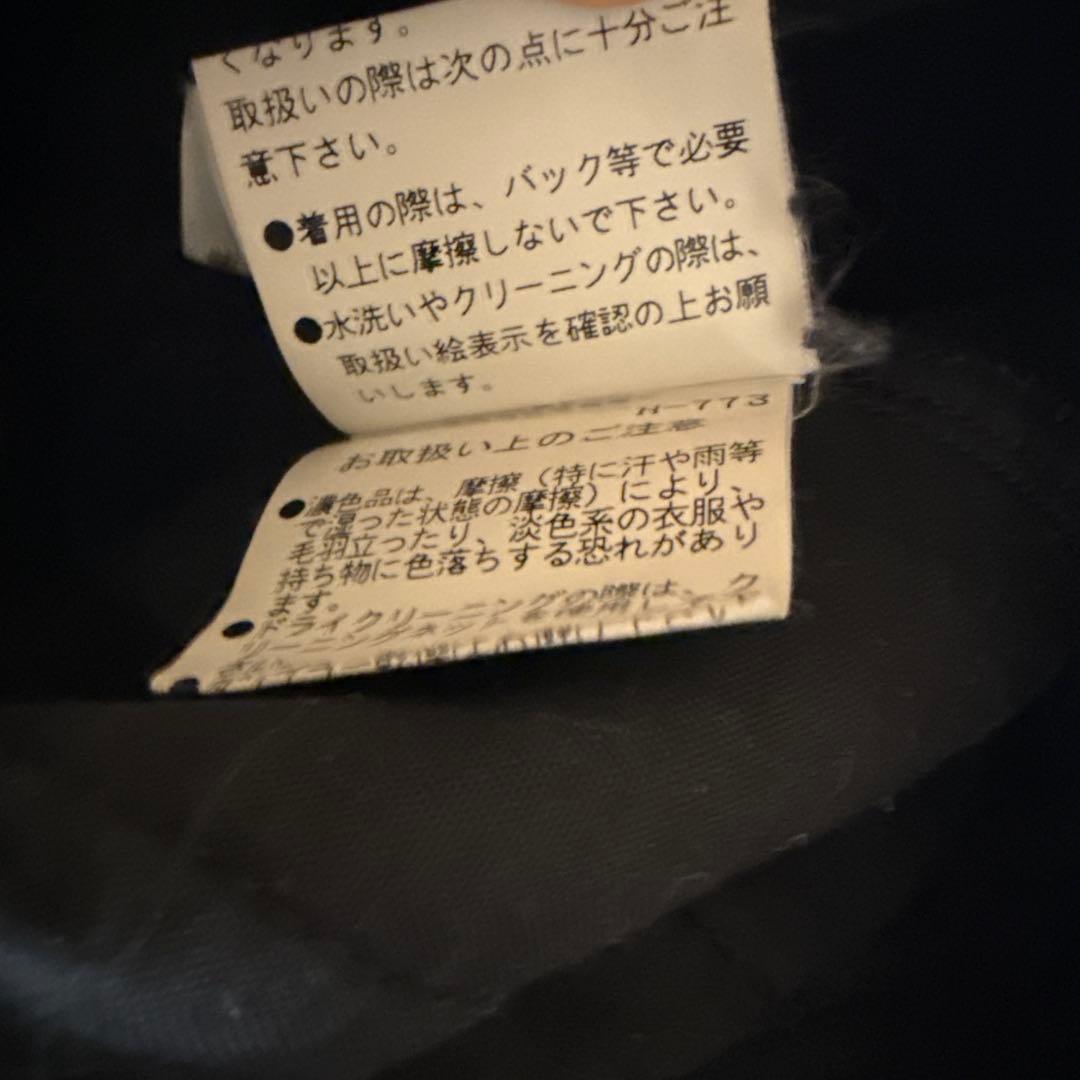 くなります。
取扱いの際は次の点に十分ご注
意下さい。
●着用の際は、バック等で必要
以上に摩擦しないで下さい。
●水洗いやクリーニングの際は、
取扱い絵表示を確認の上お願
いします。
H-773
お取扱い上のご注意
●濃色品は、摩擦(特に汗や雨等
で湿った状態の摩擦)により、
毛羽立ったり、淡色系の衣服や
持ち物に色落ちする恐れがあり
ます。
●ドライクリーニングの際は、ク
リーニングネットを使用し